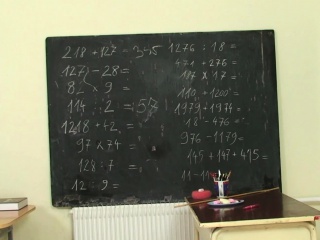 218 + 127 = 345
127 - 28 =
82 × 9 =
114 : 2 = 57
1218 + 42 =
97 × 74 =
128 : 7 =
12 : 9 =
1276 : 18 =
471 + 276 =
117 × 17 =
110 + 1200 =
1979 + 1974 =
18 - 476 =
976 - 1179 =
145 + 147 + 475 =